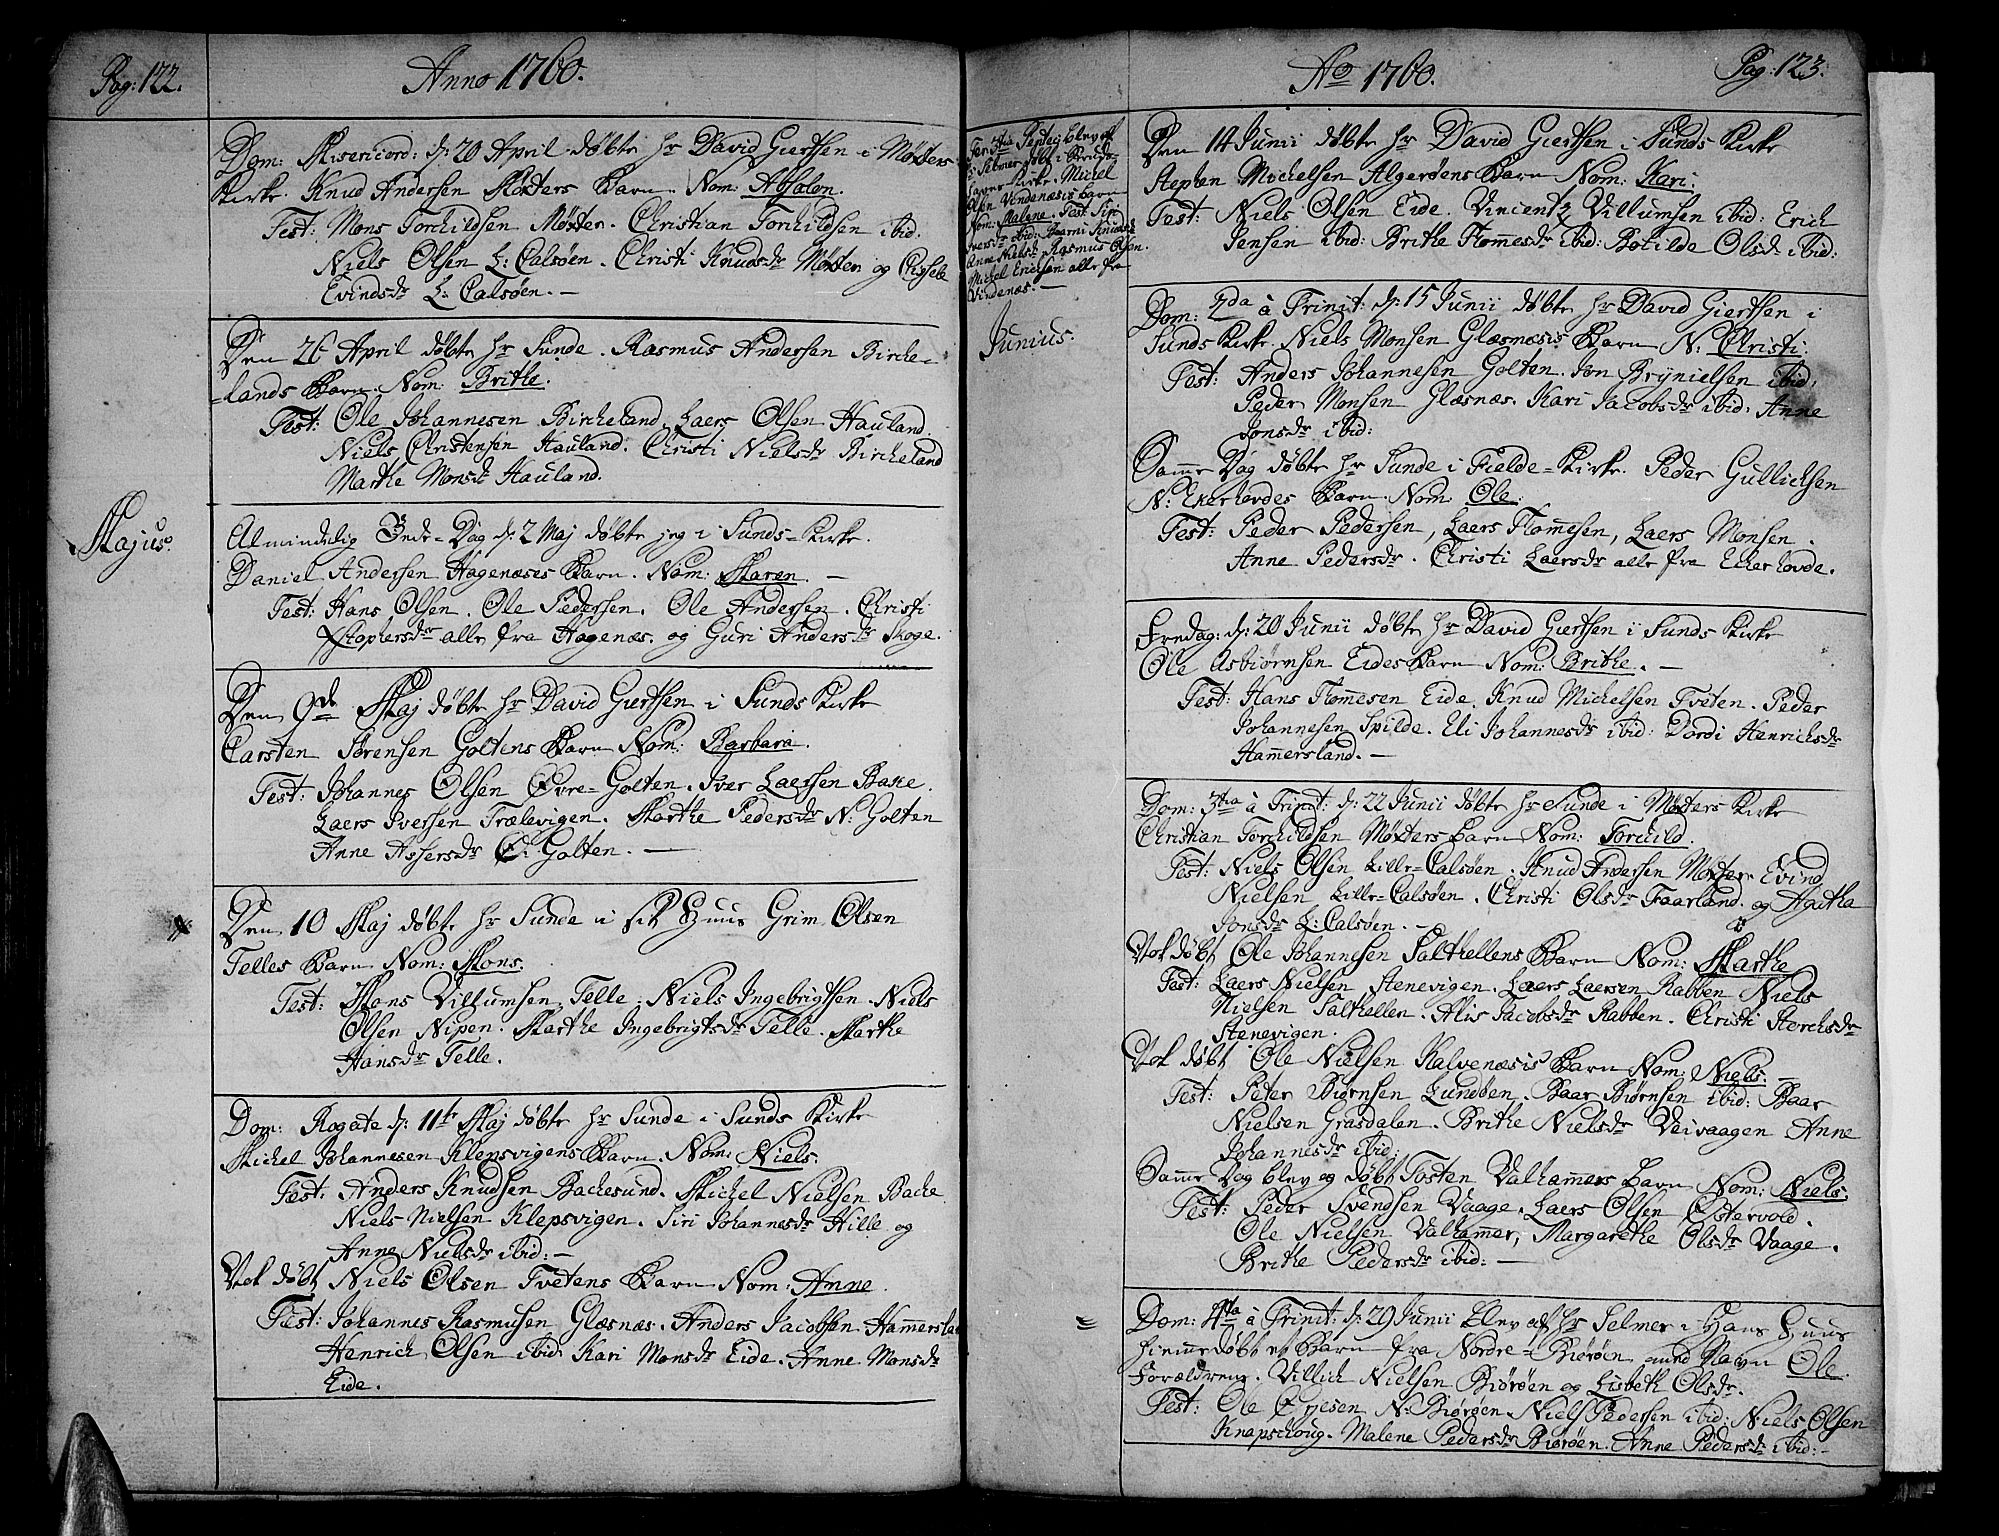 Pag: 122.
Anno 1760.
Dom: Misericord: d: 20 April døbte hr David Giertsen i Møxters
Kirke. Knud Andersen Møxters Barn. Nom: Absalon.
Test: Mons Torchildsen Møxter. Christian Torchildsen ibid.
Niels Olsen L: Calsøen. Christi Knudsdr Møxter og
Evindsdr L: Calsøen. —
Den 26 April døbte hr Sunde. Rasmus Andersen Birche-
-lands Barn. Nom: Brithe.
Test: Ole Johannesen Bircheland. Laers Olsen Hauland.
Niels Christensen Hauland. Christi Nielsdr Bircheland
Marthe Monsdr Hauland.
Majus.
Almindelig Bede-Dag d: 2 Maj døbte jeg i Sunds-Kirke.
Daniel Andersen Hagenæses Barn. Nom: Maren. —
Test: Hans Olsen. Ole Pedersen. Ole Andersen. Christi
Xstophersdr alle fra Hagenæs. og Guri Andersdr Skoge.
Den 9de Maj døbte hr David Giertsen i Sunds Kirke
Carsten Sørensen Goltens Barn Nom: Barbara.
Test: Johannes Olsen Øvre-Golten. Iver Laersen Backe.
Laers Iversen Trælevigen. Marthe Pedersdr N: Golten
Anne Assersdr Ø: Golten. —
Den 10 Maj døbte hr Sunde i sit Huus Grim Olsen
Telles Barn Nom: Mons.
Test: Mons Villumsen Telle. Niels Ingebrigtsen. Niels
Olsen Nipen. Marthe Ingebrigtsdr Telle. Marthe
Hansdr Telle.
Dom: Rogate d: 11te Maj døbte hr Sunde i Sunds Kirke
Michel Johannesen Klepsvigens Barn. Nom: Niels.
Test: Anders Knudsen Bachesund. Michel Nielsen Bache
Niels Nielsen Klepsvigen. Siri Johannesdr Hille og
Anne Nielsdr ibid: —
Vok døbt Niels Olsen Tvetens Barn Nom: Anne.
Test: Johannes Rasmusen Glæsnæs. Anders Jacobsen Hammersla
Henrich Olsen ibid: Kari Monsdr Eide. Anne Monsdr
Eide.
Ao 1760.
Pag: 123.
døbt i
Kirke. Michel
Olsen Vindenæsis Barn
Nom: Malene. Test:
Anne Nielsdr Rasmus Olsen.
Michel Ericksen alle fra
Vindenæs. —
Junius.
Den 14 Junii døbte hr David Giertsen i Sunds Kirke
Stephen Michelsen Algerøens Barn Nom: Kari.
Test: Niels Olsen Eide. Vincentz Villumsen ibid: Erich
Jensen ibid: Brithe Tommesdr ibid: Botilde Olsdr ibid:
Dom: 2da à Trinit: d: 15 Junii døbte hr David Giertsen i
Sunds Kirke. Niels Monsen Glæsnæsis Barn N: Christi.
Test: Anders Johannesen Golten. Jon Brynielsen ibid:
Peder Monsen Glæsnæs. Kari Jacobsdr ibid: Anne
Jonsdr ibid:
Samme Dag døbte hr Sunde i Fielde-Kirke. Peder Gullichsen
N: Ekerhovdes Barn. Nom: Ole.
Test: Peder Pedersen, Laers Tommesen, Laers Monsen.
Anne Pedersdr. Christi Laersdr alle fra Ekerhovde.
Fredag: d: 20 Junii døbte hr David Giertsen i Sunds Kirke
Ole Asbiørnsen Eides Barn Nom: Brithe. —
Test: Hans Tommesen Eide. Knud Michelsen Tveten. Peder
Johannesen Spilde. Eli Johannesdr ibid: Dordi Henrichsdr
Hammersland. —
Dom: 3tia à Trinit: d: 22 Junii døbte hr Sunde i Møxters Kirke
Christian Torchildsen Møxters Barn Nom: Torchild.
Test: Niels Olsen Lille-Calsøen. Knud Andersen Møxter Evind
Nielsen Lille-Calsøen. Christi Olsdr Faarland. og Agatha
Jonsdr L: Calsøen. —
Vok døbt Ole Johannesen Salthellens Barn Nom: Marthe
Test: Laers Nielsen Stenevigen. Laers Laersen Rabben Niels
Nielsen Salthellen. Alis Jacobsdr Rabben. Christi
Stenevigen.
Vok døbt Ole Nielsen Kalvenæsis Barn Nom: Niels. —
Test: Peter Biørnsen Lundøen. Baar Biørnsen ibid: Baar
Nielsen Grasdalen. Brithe Nielsdr Veivaagen Anne
Johannesdr ibid:
Samme Dag blev og døbt Tosten Valhammers Barn Nom: Niels.
Test: Peder Svendsen Vaage. Laers Olsen Østervold.
Ole Nielsen Valhammer, Margarethe Olsdr Vaage.
Brithe Pedersdr ibid: —
Dom: 4ta à Trinit: d: 29 Junii blev af hr Selmer i Hans Huus
hiemmedøbt et Barn fra Nordre-Biørøen med Navn Ole
Forældrene. Villich Nielsen Biørøen og Lisbeth Olsdr.
Test: Ole N: Biørøen. Niels Pedersen ibid: Niels Olsen
Knapschoug. Malene Pedersdr Biørøen. Anne Pedersdr ibid: —